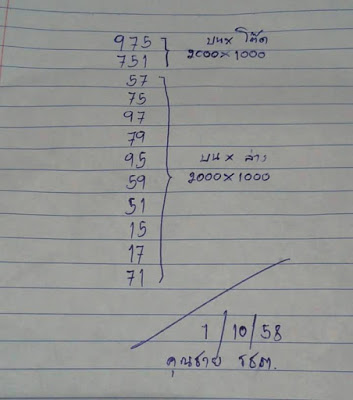 975 บน x โต๊ด
751 2000x1000
57
75
97
79
95 บน x ล่าง
59 2000x1000
51
15
17
71
1/10/58
คุณชาย รชต.